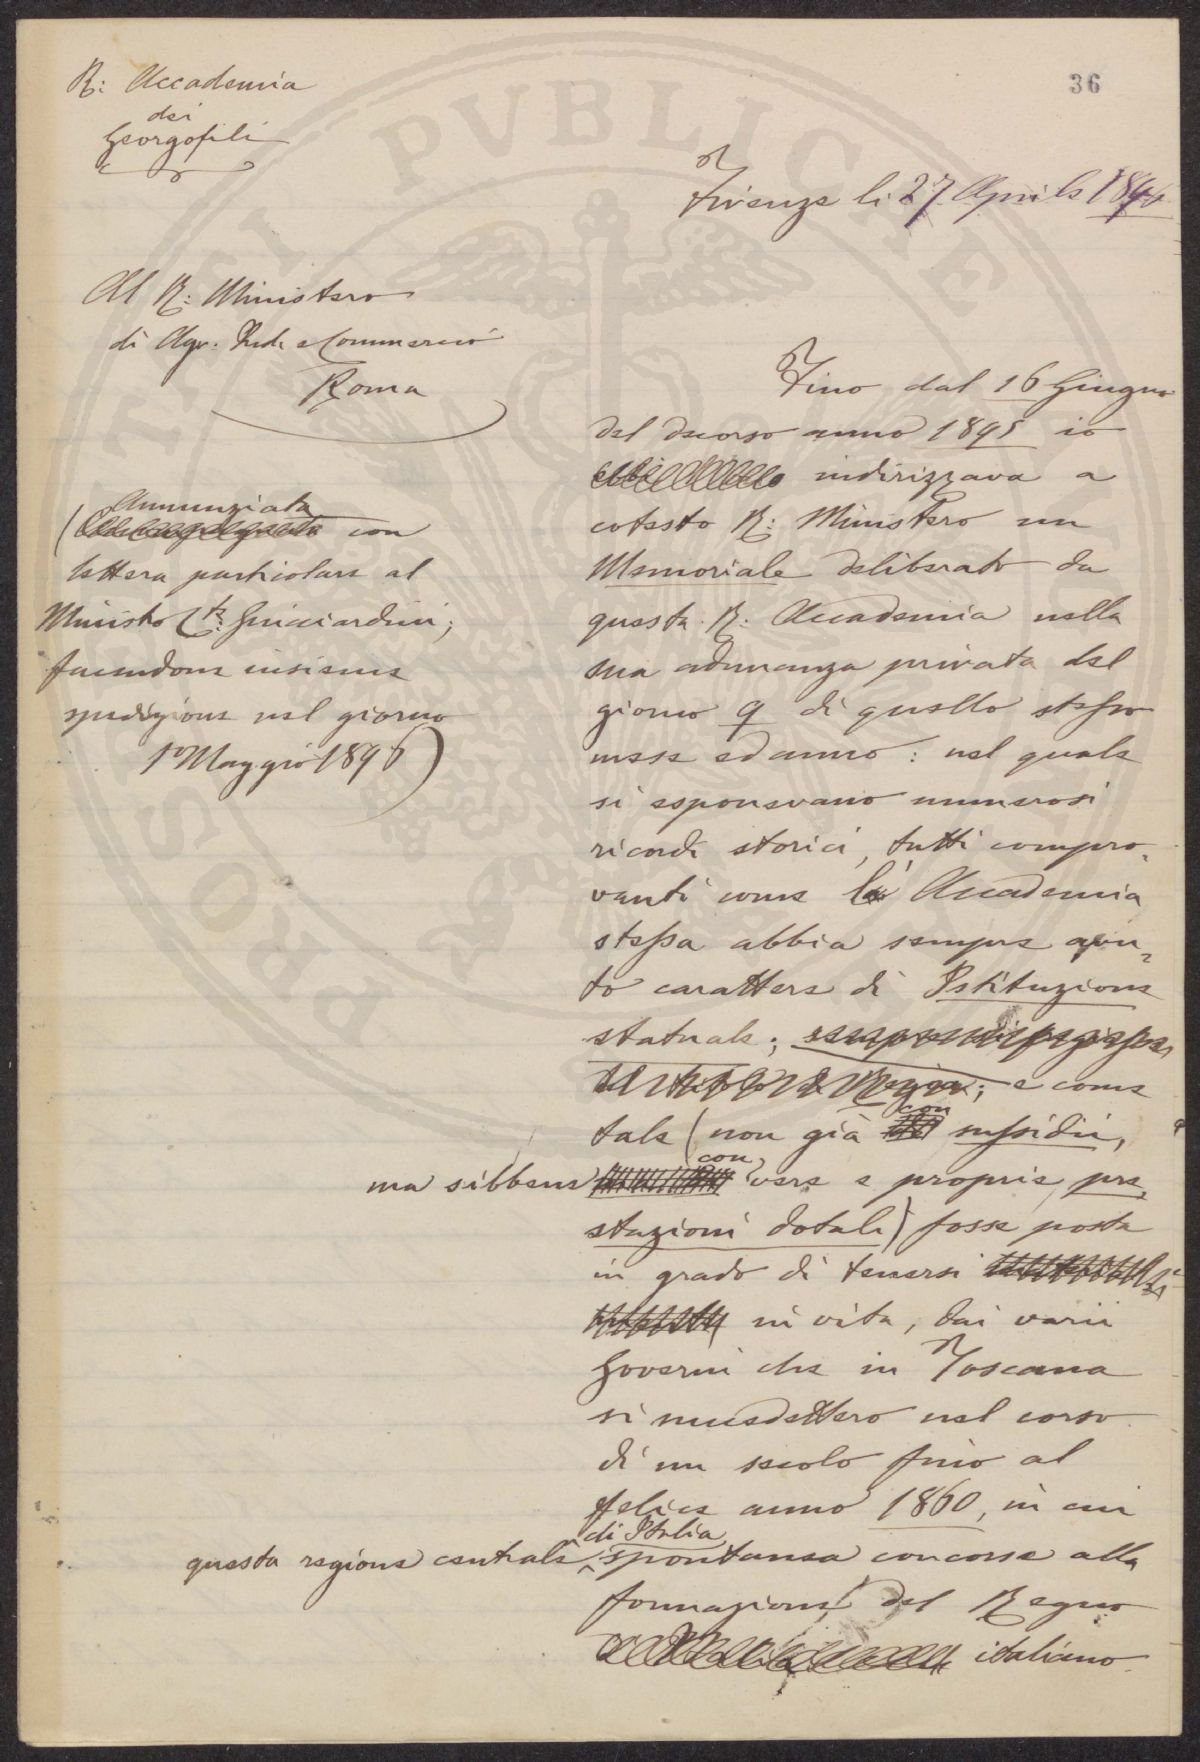 36
R: Accademia
dei
Georgofili
Firenze li 27 Aprile 1896
Al R: Ministero
di Agr. Ind. e Commercio
Roma
(Annunziata con
lettera particolare al
Ministro Cte: Guicciardini;
facendone insieme
spedizione nel giorno
1° Maggio 1896)
Fino dal 16 Giugno
del decorso anno 1895 io
indirizzava a
cotesto R: Ministero un
Memoriale deliberato da
questa R: Accademia nella
sua adunanza privata del
giorno 9 di quello stesso
mese ed anno: nel quale
si esponevano numerosi
ricordi storici, tutti compro-
vanti come l'Accademia
stessa abbia sempre avu-
to carattere di Istituzione
statuale; e come
tale (non già con sussidii,
ma sibbene con vere e proprie pre-
stazioni dotali) fosse posta
in grado di tenersi
in vita, dai varii
Governi che in Toscana
si succedettero nel corso
di un secolo fino al
felice anno 1860, in cui
questa regione centrale di Italia spontanea concorse alla
formazione del Regno
italiano.